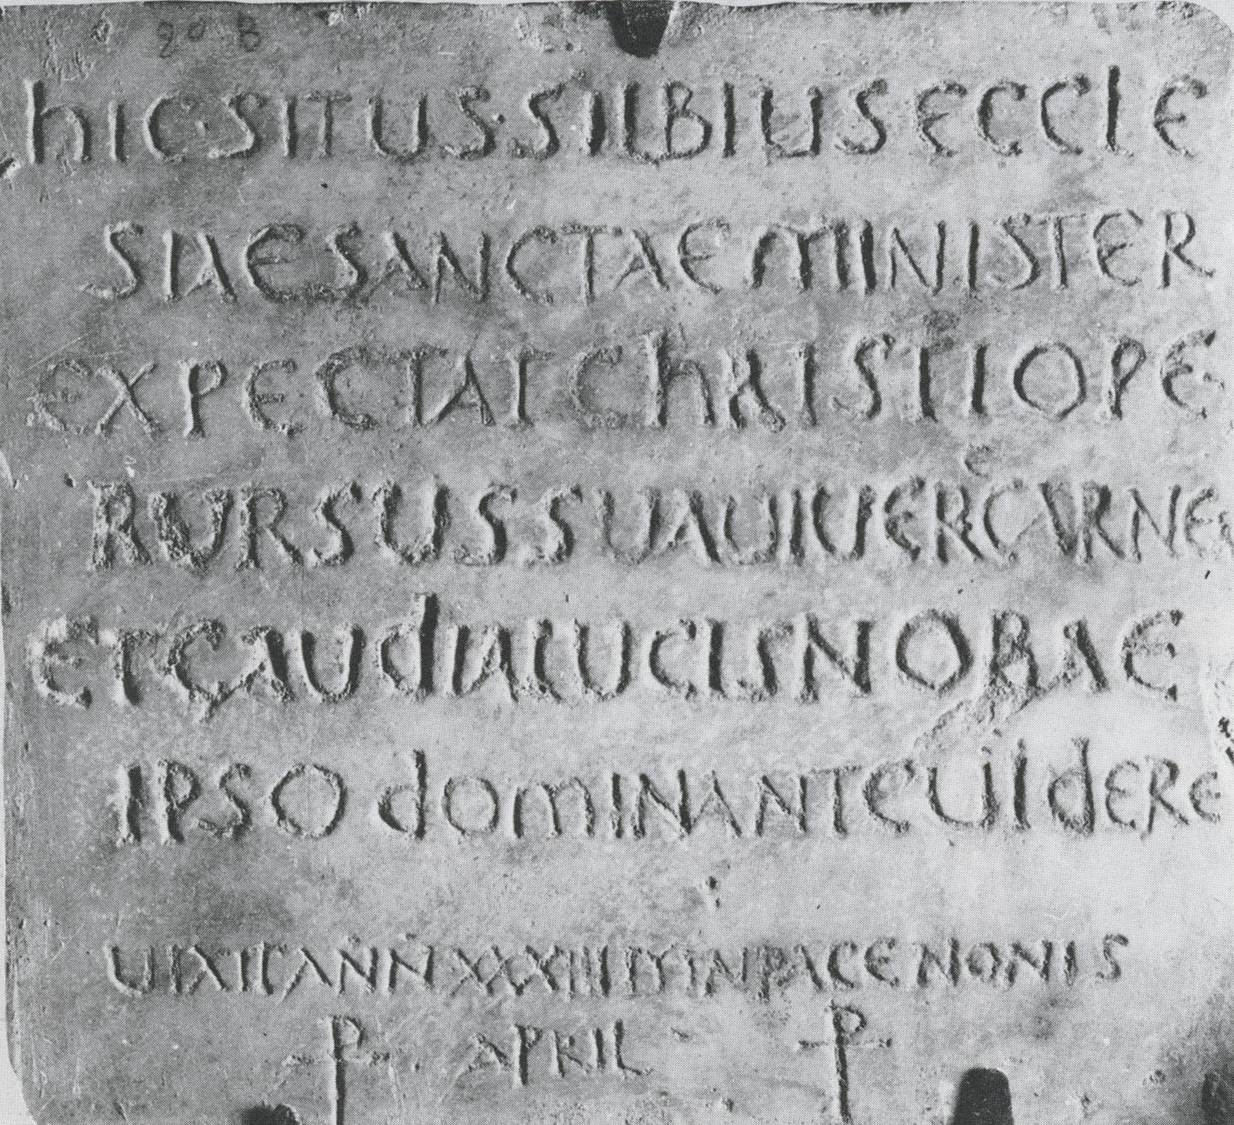 20 B
hIC·SITUS·SILBIUS ECCLE
SIAE SANCTAE MINISTER
EXPECTAT ChRISTI OPE
RURSUS SUA UIUERE CARNE
ET GAUDIA LUCIS NOBAE
IPSO dOMINANTE UIdERE
UIXIT ANN XXXIII IN PACE NONIS
APRIL